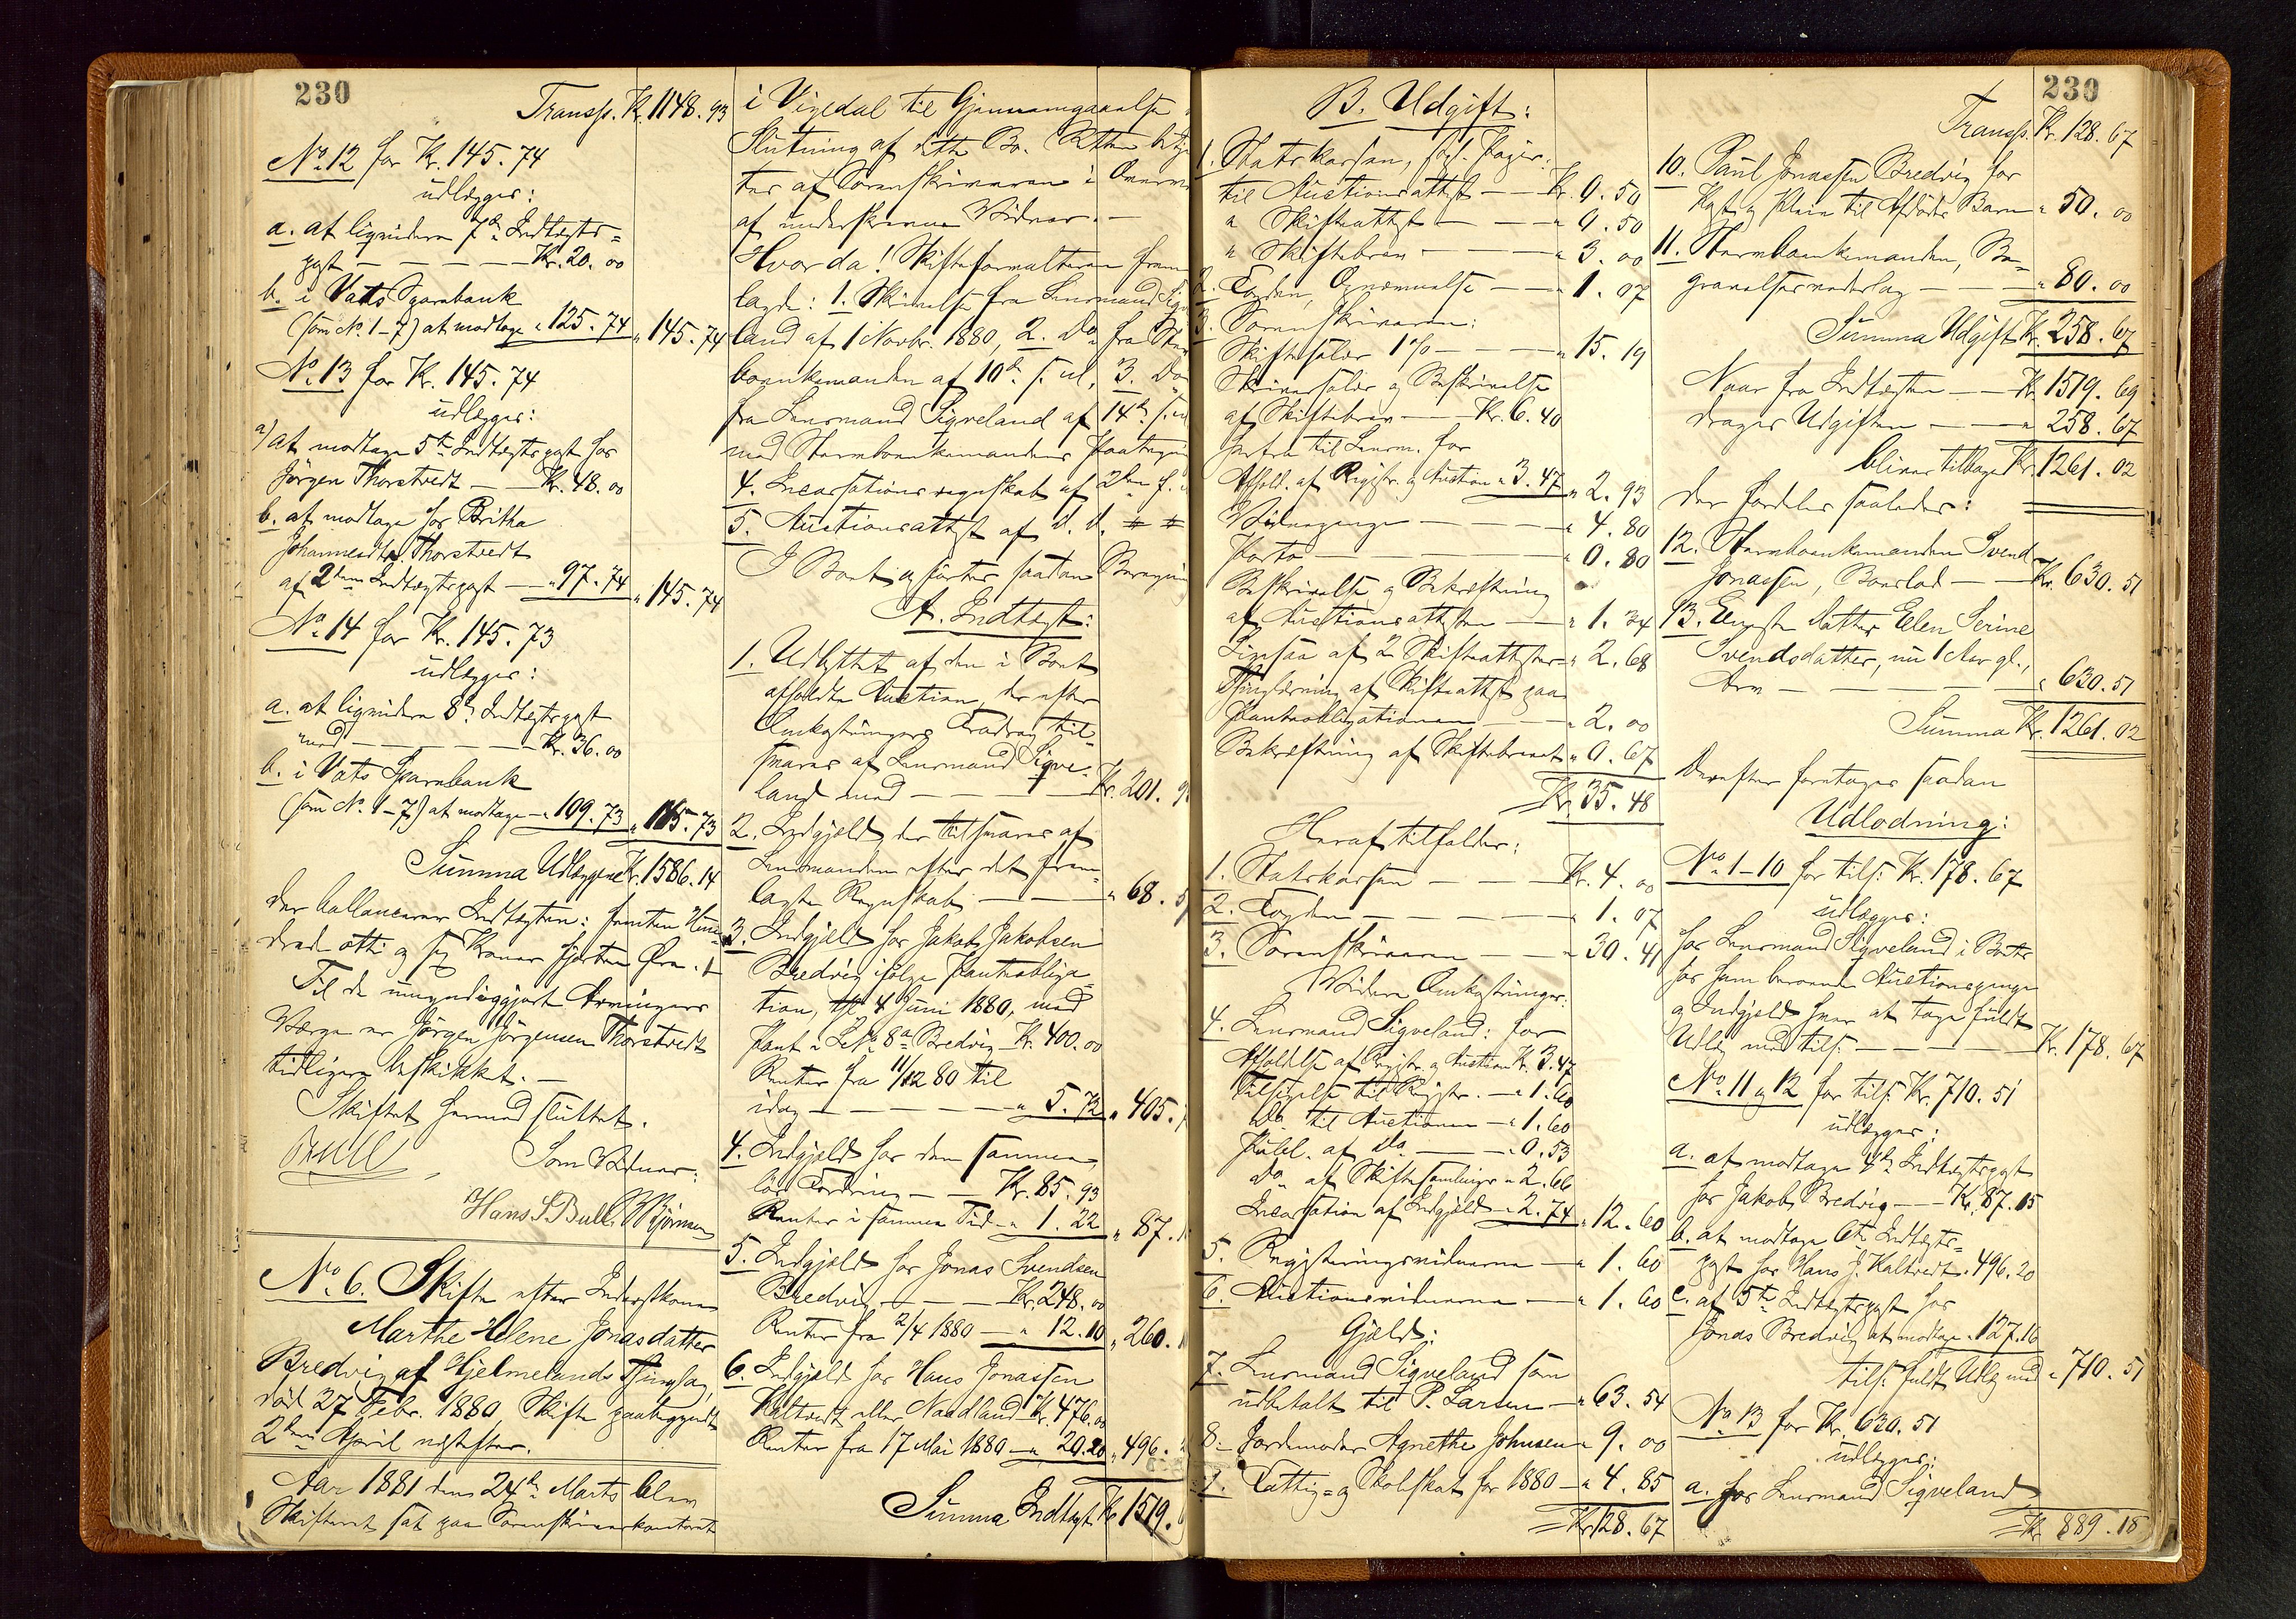 230
Transp. Kr. 1148.93
No 12 for Kr. 145.74
udlægges:
a. at liqvidere 7de Indtægts-
post — Kr. 20.00
b. i Vats Sparebank
(som No. 1-7) at modtage " 125.74 " 145.74
No 13 for Kr. 145.74
udlægges:
a) at modtage 5te Indtægtspost hos
Jørgen Thorstvedt — Kr. 48.00
b. at modtage hos Britha
Johannesdtr. Thorstvedt
af 2den Indtægtspost — " 97.74 " 145.74
No 14 for Kr. 145.73
udlægges:
a. at liqvidere 8de Indtægtspost
med — Kr. 36.00
b. i Vats Sparebank
(som No. 1-7) at modtage — " 109.73 " 145.73
Summa Udlæggene Kr. 1586.14
der ballancerer Indtægten: femten Hun-
drede otti og sex Kroner fjorten Øre.
Til de umyndiggjorte Arvingers
Værge er Jørgen Jørgensen Thorstvedt
tidligere beskikket. —
Skiftet hermed sluttet.
Bull
Som Vidner:
Hans S Bull. Bjørnsen
No. 6. Skifte efter Inderstkone
Marthe Helene Jonasdatter
Bredvig af Hjelmelands Thinglag,
død 27 Febr. 1880, Skifte paabegyndt
2den April næstefter.
Aar 1881 den 24de Marts blev
Skifteret sat paa Sorenskriverkontoret
i Vigedal til Gjennemgaaelse
Slutning af dette Bo. Retten betje
tes af Sorenskriveren i Overvær
af underskrevne Vidner. —
Hvorda! Skifteforvalteren frem
lagde: 1. Skrivelse fra Lensmand Sigve
land af 1 Novbr. 1880, 2. Do fra Ster
boenkemanden af 10de s. M., 3. Do
fra Lensmand Sigveland af 14de s. M
med Sterboenkemandens Paategni
4. Incassationsregnskab af 2den f.
5. Auctionsattest af d. d.
I Boet opførtes saadan Beregni
A. Indtægt:
1. Udbyttet af den i Boet
afholdte Auction, der efter
Omkostningers Fradrag til-
svares af Lensmand Sigve-
land med — Kr. 201.
2. Indgjæld, der tilsvares af
Lensmanden efter det frem-
lagte Regnskab — " 68.
3. Indgjæld hos Jakob Jakobsen
Bredvig ifølge Panteobliga-
tion, tgl. 4 Juni 1880, med
Pant i L. No. 8a Bredvig — Kr. 400.00
Renter fra 11/12 80 til
idag — " 5.72 " 405.
4. Indgjæld hos den samme,
løs Fordring — Kr. 85.93
Renter i samme Tid — " 1.22 " 87.
5. Indgjæld hos Jonas Svendsen
Bredvig — Kr. 248.00
Renter fra 2/4 1880 — " 12.10 " 260.
6. Indgjæld hos Hans Jonassen
Kaltvedt eller Naadland Kr. 476.00
Renter fra 17 Mai 1880 — " 20.20 " 496.
Summa Indtægt Kr 1519.
B. Udgift:
1. Statskassen, sgl. Papir:
til Auctionsattest — Kr. 0.50
" Skifteattest — " 0.50
" Skiftebrev — " 3.00
2. Fogden, Opnævnelse — " 1.07
3. Sorenskriveren:
Skiftesalær 1% — " 15.19
Skriversalær og Beskrivelse
af Skiftebrev — Kr. 6.40
herfra til Lensm. for
Afhold. af Registr. og Auction " 3.47 " 2.93
Vidnepenge — " 4.80
Porto — " 0.80
Beskrivelse og Bekræftning
af Auctionsattesten — " 1.34
Ligesaa af 2 Skifteattester " 2.68
Thinglæsning af Skifteattest paa
Panteobligationen — " 2.00
Bekræftning af Skiftebrevet " 0.67
Kr. 35.48
Heraf tilfalder:
1. Statskassen — Kr. 4.00
2. Fogden — " 1.07
3. Sorenskriveren — " 30.41
Videre Omkostninger:
4. Lensmand Sigveland: for
Afholdelse af Registr. og Auction Kr. 3.47
Tilsigelse til Registr. — " 1.60
Do til Auctionen — " 1.60
Publ. af Do — " 0.53
Do af Skiftesamlinger " 2.66
Incassation af Indgjæld — " 2.74 " 12.60
5. Registreringsvidnerne — " 1.60
6. Auctionsvidnerne — " 1.60
Gjæld:
7. Lensmand Sigveland som
udbetalt til P. Larsen — " 63.54
8. Jordemoder Agnethe Johnsen " 9.00
9. Fattig- og Skoleskat for 1880 — " 4.85
Kr. 128.67
230
Transp. Kr. 128.67
10. Paul Jonassen Bredvig for
Kost og Pleie til Afdødes Barn " 50.00
11. Sterboenkemanden, Be-
gravelsesvederlag — " 80.00
Summa Udgift Kr. 258.67
Naar fra Indtægten — Kr. 1519.69
drages Udgiften — " 258.67
bliver tilbage Kr. 1261.02
der fordeles saaledes:
12. Sterboenkemanden Svend
Jonassen, Boeslod — Kr. 630.51
13. Eneste Datter Elen Serine
Svendsdatter, nu 1 Aar gl.,
Arv — " 630.51
Summa Kr. 1261.02
Derefter foretages saadan
Udlodning:
No 1-10 for tils. Kr. 178.67
udlægges:
hos Lensmand Sigveland i Boets
hos ham beroende Auctionspenge
og Indgjæld hver at tage fuldt
Udlæg med tils. — Kr. 178.67
No. 11 og 12 for tils. Kr. 710.51
udlægges:
a. at modtage 4de Indtægtspost
hos Jakob Bredvig — Kr. 87.15
b. at modtage 6te Indtægts-
post hos Hans J. Kaltvedt " 496.20
c. af 5te Indtægtspost hos
Jonas Bredvig at modtage " 127.16
tils. fuldt Udlæg med " 710.51
No. 13 for Kr. 630.51
udlægges:
a. hos Lensmand Sigveland
Kr. 889.18